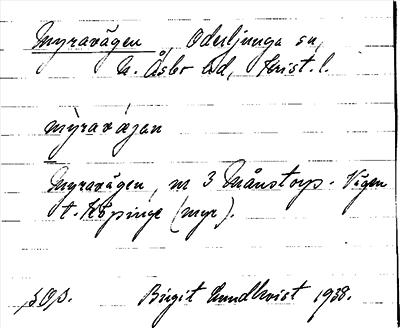 Myravägen, Oderljunga sn,
N. Åsbo hd, Krist. l.
mỳravä̀gan
Myravägen, m 3 Månstorp. Vägen
t. Köpinge (myr).
Birgit Lundkvist 1938.